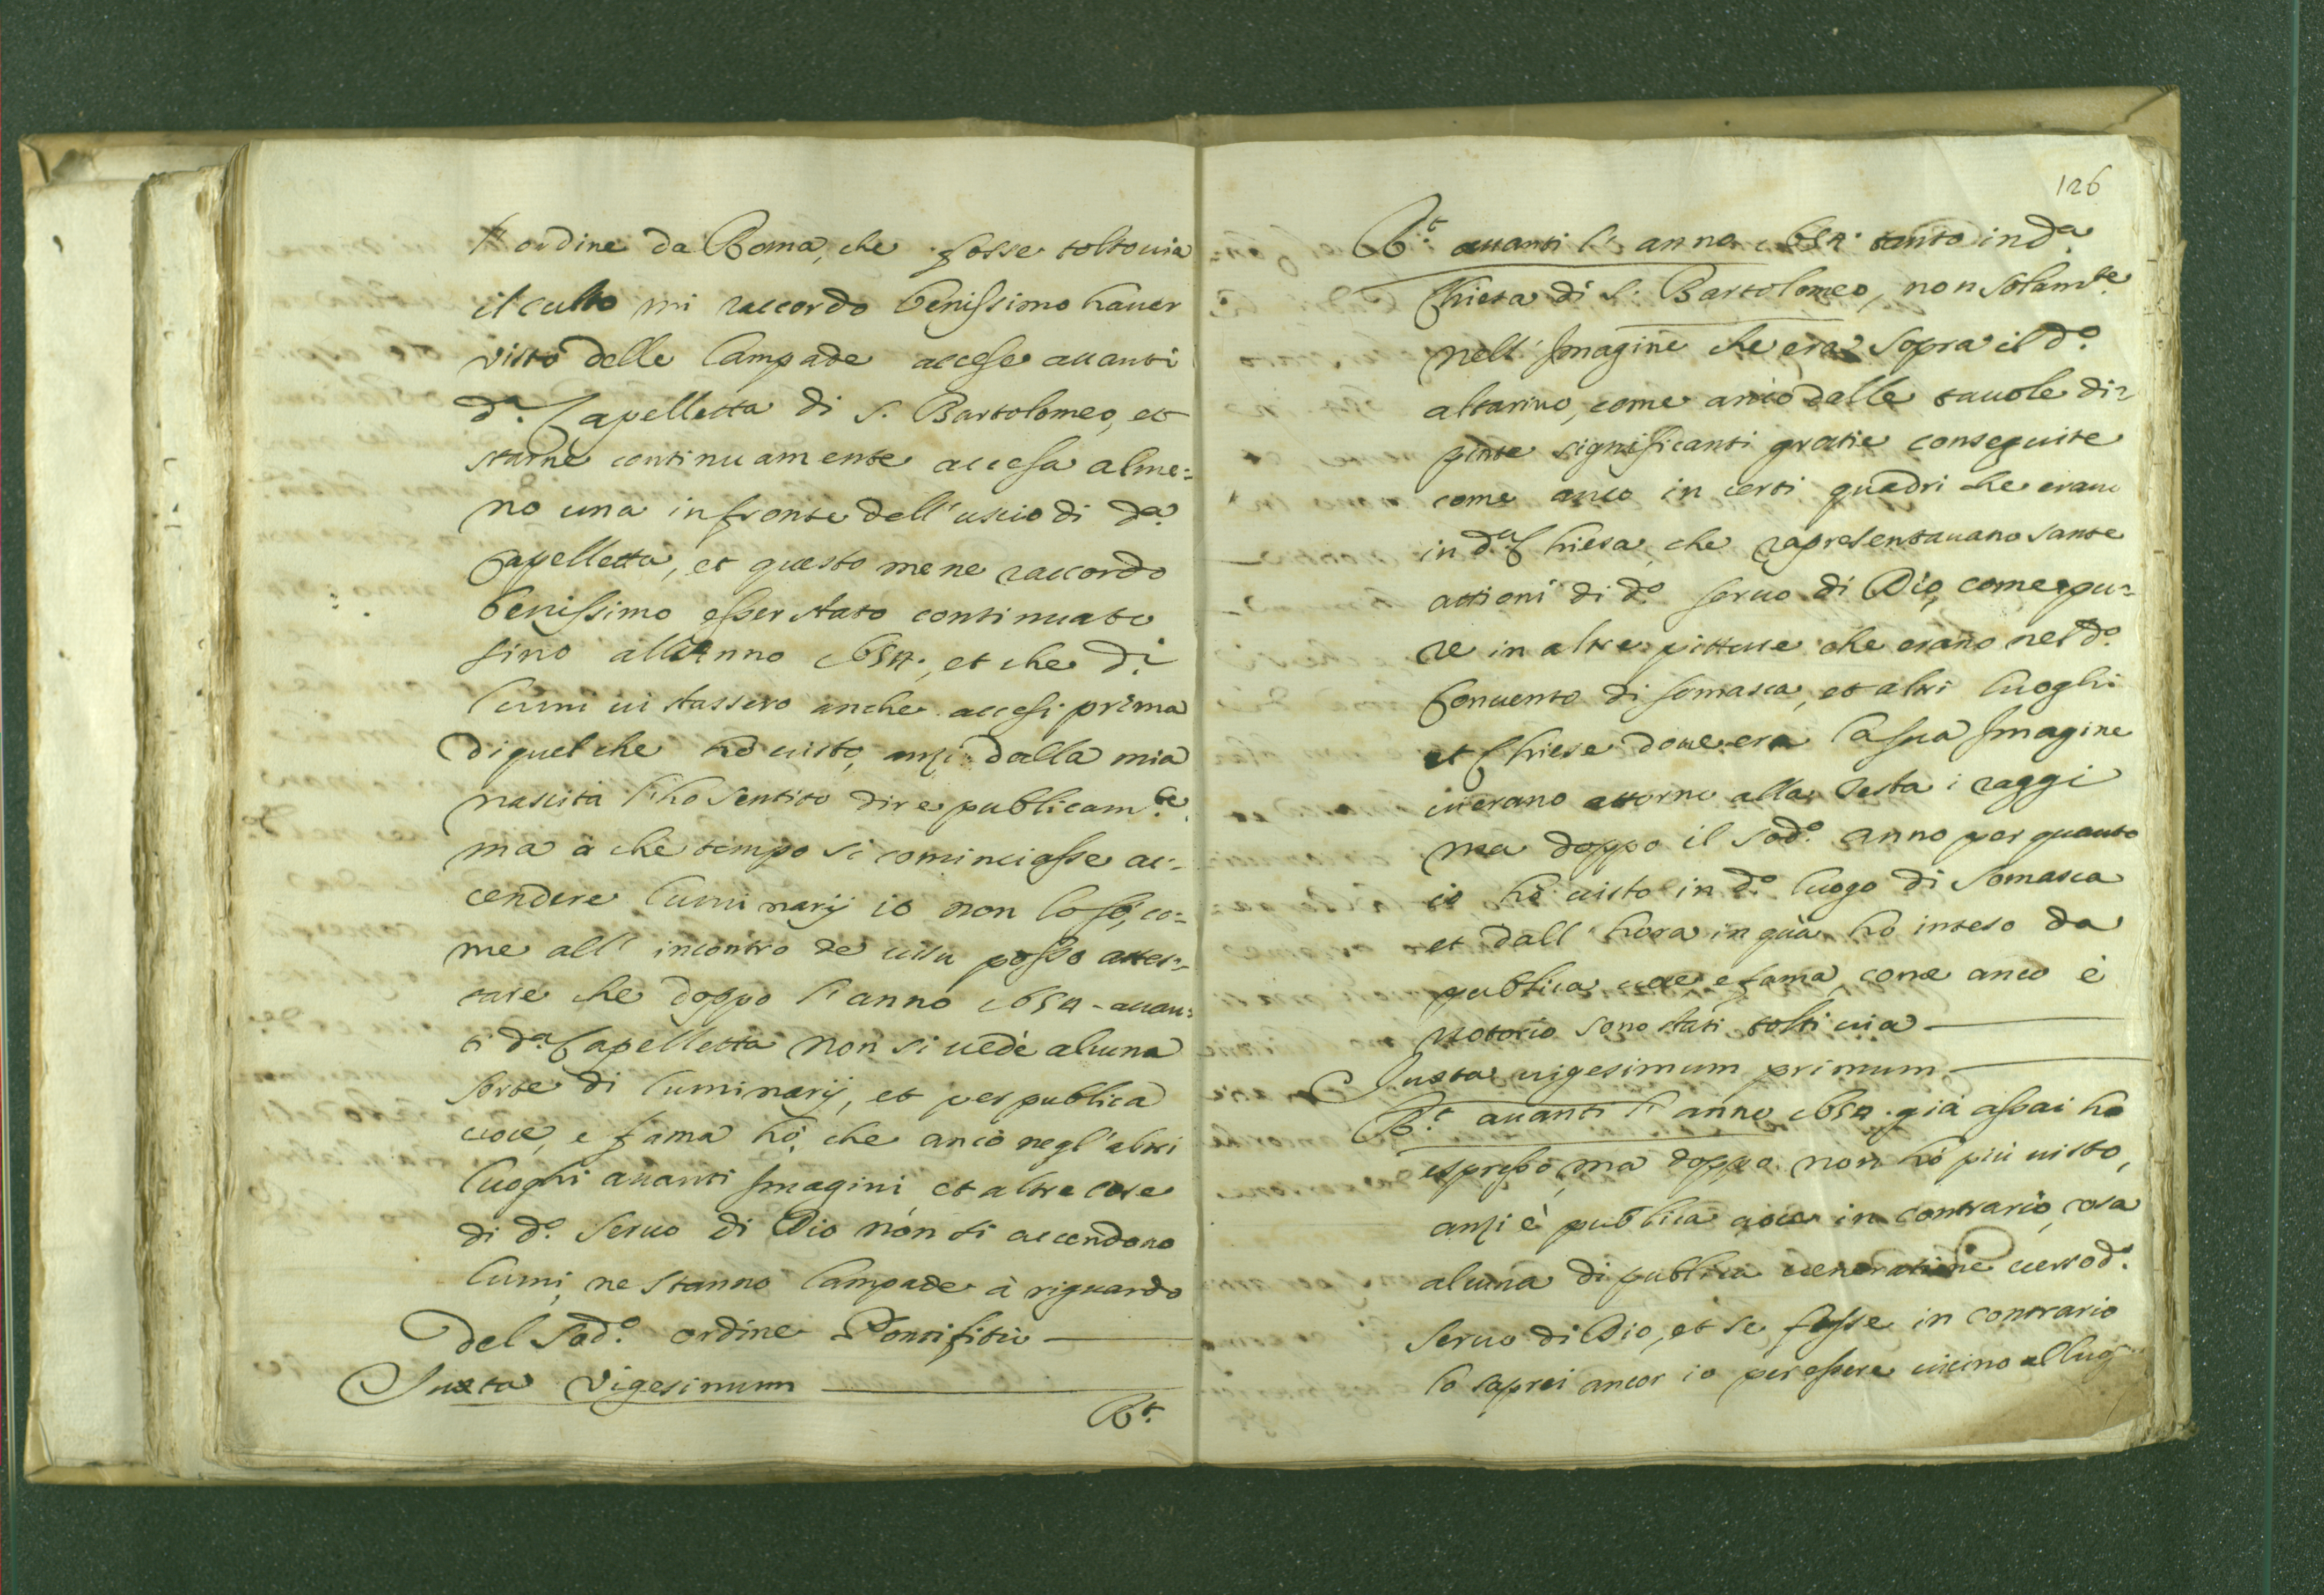 l'ordine da Roma, che fosse tolto uia
il culto mi raccordo benissimo hauer
visto delle lampade accese auanti
d.ª Capelletta di S. Bartolomeo, et
starne continuamente accesa alme=
no una in fronte dell'uscio di d.ª
Capelletta, et questo me ne raccordo
benissimo esser stato continuato
sino all'Anno 1654; et che di
lumi ui stassero anche accesi prima
di quel che hò uisto, anzi dalla mia
nascita l'hò sentito dire publicam.te,
ma à che tempo si cominciasse ac=
cendere luminarij io non lo sò, co=
me all'incontro de uisu posso attes=
tare che doppo l'anno 1654 - auan=
ti d.ª Capelletta non si uede alcuna
sorte di luminarij, et per publica
uoce, e fama hò, che anco negl'altri
luoghi auanti Imagini et altre cose
di d.º Seruo di Dio non si accendono
lumi, ne stanno lampade à riguardo
del sod.º ordine Pontifitio
Juxta Vigesimum
R.t
126
R.t auanti l'anno 1654. tanto in d.ª
Chiesa di S. Bartolomeo, non solam.te
nell'Imagine che era sopra il d.º
altarino, come anco dalle tauole di=
pinte significanti gratie conseguite
come anco in certi quadri che erano
in d.ª Chiesa, che rapresentauano sante
attioni di d.º seruo di Dio, come pu=
re in altre pitture che erano nel d.º
Conuento di Somasca, et altri luoghi
et Chiese doue era la sua Imagine
ui erano attorno alla testa i raggi
ma doppo il sod.º anno per quanto
io hò uisto in d.º luogo di Somasca
et dall'hora in quà hò inteso da
publica uoce e fama, come anco è
notorio sono stati tolti uia
Juxta uigesimum primum
R.t auanti l'anno 1654. già assai ho
espresso, ma doppo non hò più uisto,
anzi è publica uoce in contrario, cosa
alcuna di publica ueneratione uerso d.º
Seruo di Dio, et se fosse in contrario
lo saprei ancor io per essere uicino al luog